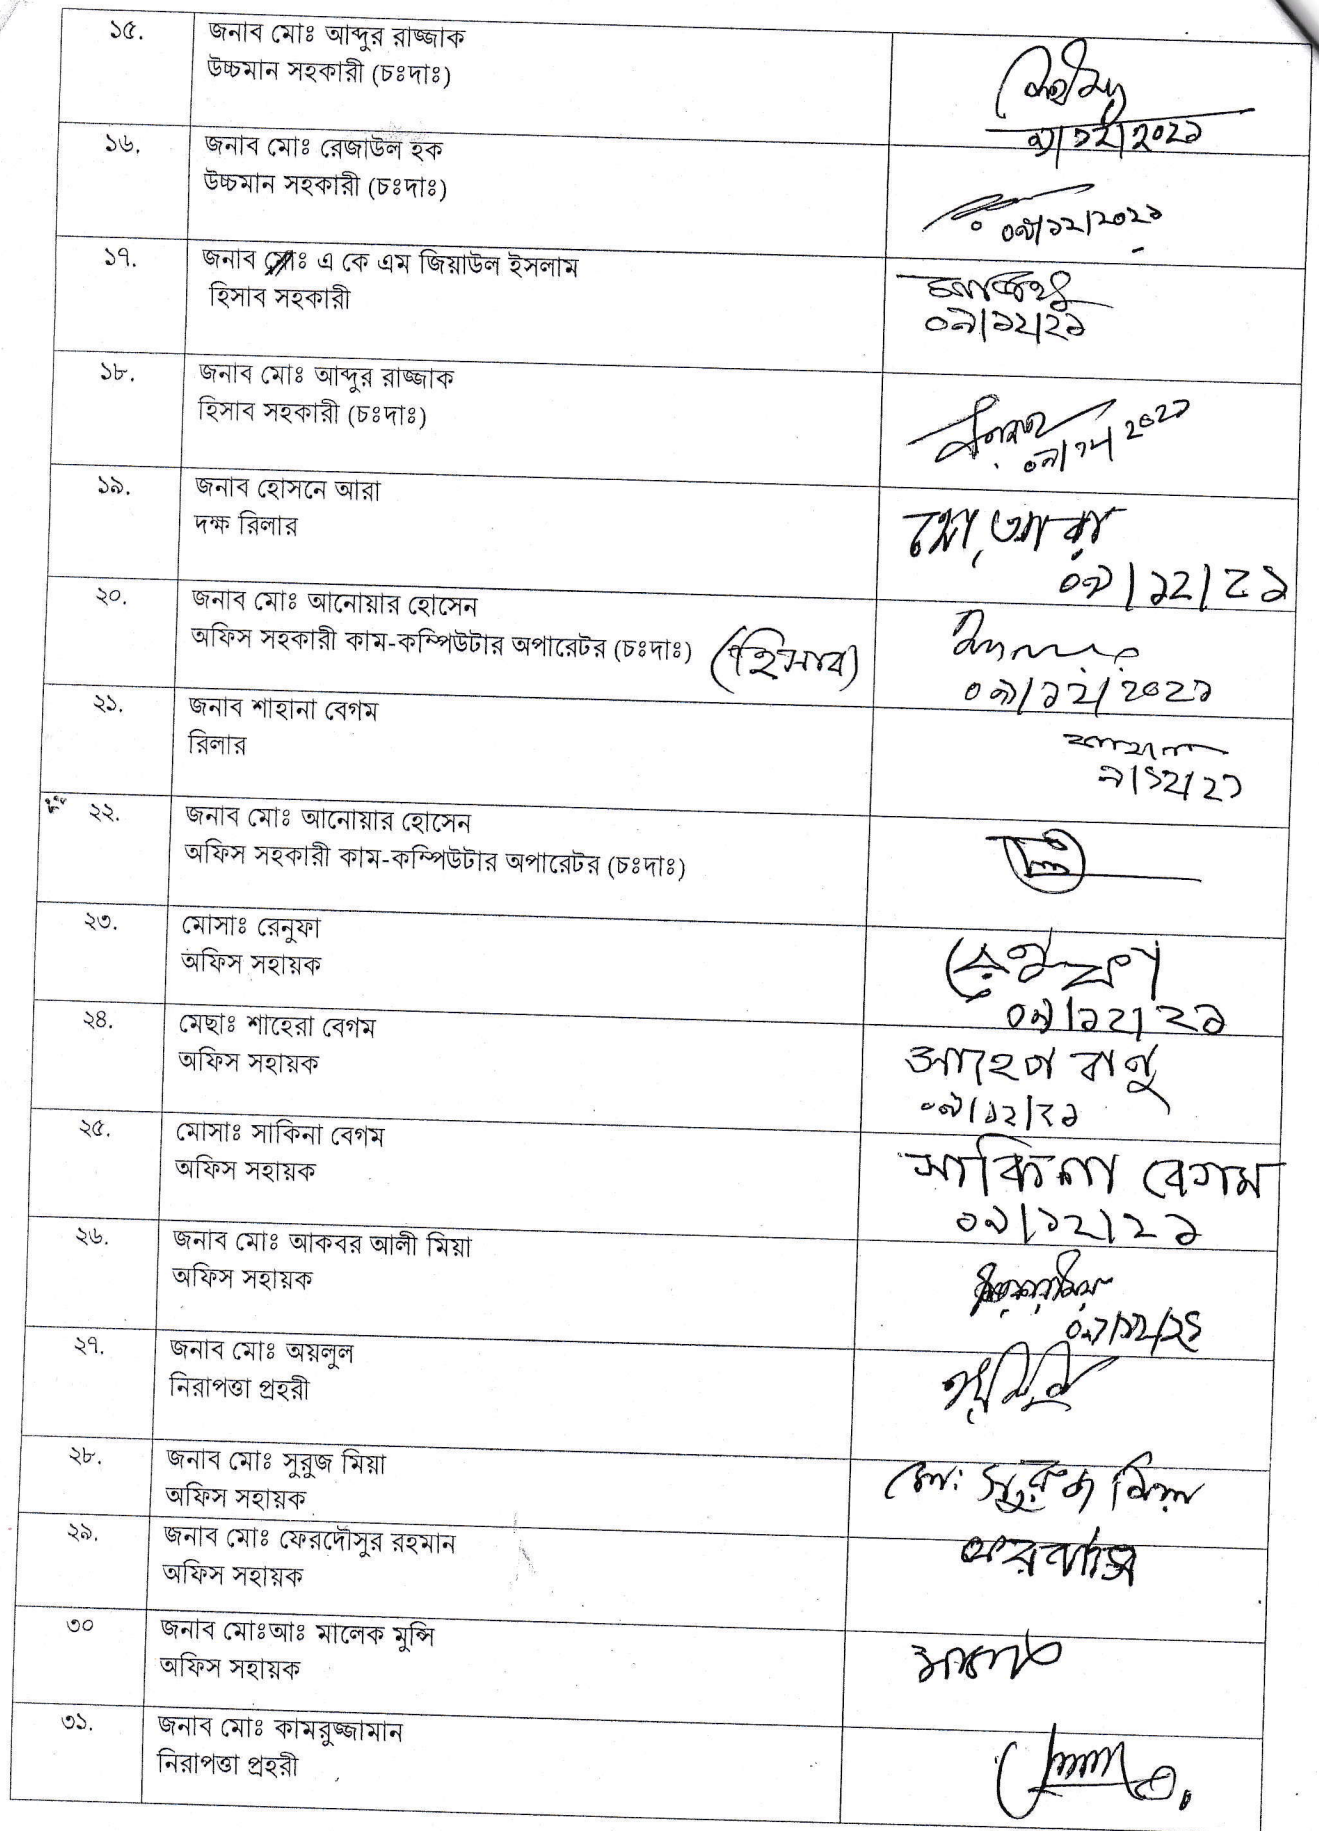 ১৫.
জনাব মোঃ আব্দুর রাজ্জাক
উচ্চমান সহকারী (চঃদাঃ)
৯/১২/২০২১
১৬.
জনাব মোঃ রেজাউল হক
উচ্চমান সহকারী (চঃদাঃ)
০৯/১২/২০২১
১৭.
জনাব মোঃ এ কে এম জিয়াউল ইসলাম
হিসাব সহকারী
০৯/১২/২১
১৮.
জনাব মোঃ আব্দুর রাজ্জাক
হিসাব সহকারী (চঃদাঃ)
০৯/১২/২০২১
১৯.
জনাব হোসনে আরা
দক্ষ রিলার
০৯/১২/২১
২০.
জনাব মোঃ আনোয়ার হোসেন
অফিস সহকারী কাম-কম্পিউটার অপারেটর (চঃদাঃ) (হিসাব)
০৯/১২/২০২১
২১.
জনাব শাহানা বেগম
রিলার
শাহানা
৯/১২/২১
২২.
জনাব মোঃ আনোয়ার হোসেন
অফিস সহকারী কাম-কম্পিউটার অপারেটর (চঃদাঃ)
২৩.
মোসাঃ রেনুফা
অফিস সহায়ক
রেনুফা
০৯/১২/২১
২৪.
মেছাঃ শাহেরা বেগম
অফিস সহায়ক
০৯/১২/২১
২৫.
মোসাঃ সাকিনা বেগম
অফিস সহায়ক
সাকিনা বেগম
০৯/১২/২১
২৬.
জনাব মোঃ আকবর আলী মিয়া
অফিস সহায়ক
০৯/১২/২১
২৭.
জনাব মোঃ অয়লুল
নিরাপত্তা প্রহরী
২৮.
জনাব মোঃ সুরুজ মিয়া
অফিস সহায়ক
মোঃ সুরুজ মিয়া
২৯.
জনাব মোঃ ফেরদৌসুর রহমান
অফিস সহায়ক
৩০
জনাব মোঃআঃ মালেক মুন্সি
অফিস সহায়ক
মালেক
৩১.
জনাব মোঃ কামরুজ্জামান
নিরাপত্তা প্রহরী